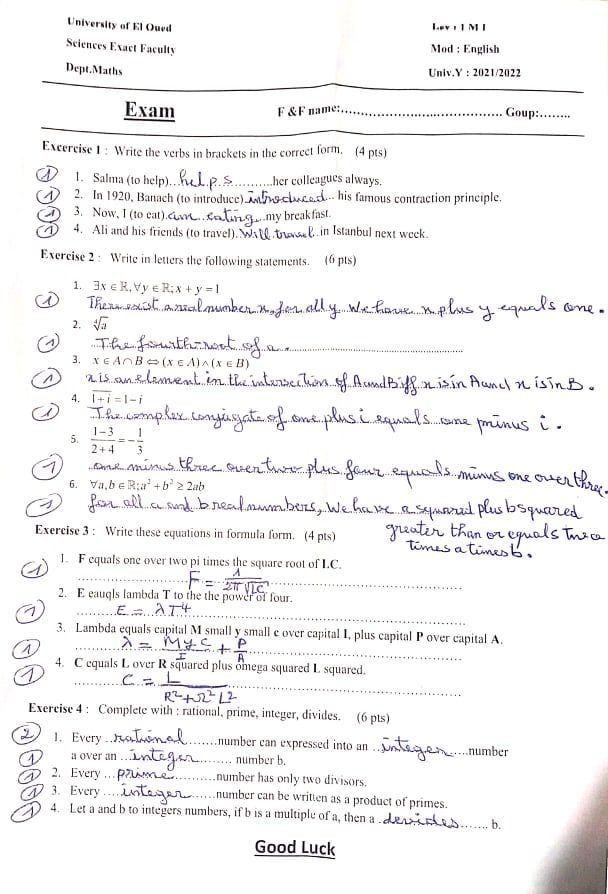 University of El Oued
Sciences Exact Faculty
Dept.Maths
Lev : 1 M I
Mod : English
Univ.Y : 2021/2022
Exam F &F name:........................................ Goup:........
Excercise 1 : Write the verbs in brackets in the correct form. (4 pts)
① 1. Salma (to help)...helps..........her colleagues always.
① 2. In 1920, Banach (to introduce).introduced... his famous contraction principle.
① 3. Now, I (to eat).am eating...my breakfast.
① 4. Ali and his friends (to travel).Will travel.in Istanbul next week.
Exercise 2 : Write in letters the following statements. (6 pts)
1. ∃x ∈ ℝ, ∀y ∈ ℝ; x + y = 1
① There exist a real number x, for all y We have x plus y equals one.
2. ∜a
① The fourth root of a.
3. x ∈ A ∩ B ⇔ (x ∈ A) ∧ (x ∈ B)
① x is an element in the intersection of A and B iff x is in A and x is in B.
4. \overline{1+i} = 1−i
① The complex conjugate of one plus i equals one minus i.
5. (1−3)/(2+4) = −1/3
① one minus three over two plus four equals minus one over three.
6. ∀a,b ∈ ℝ; a² + b² ≥ 2ab
① for all a and b real numbers, We have a squared plus b squared
greater than or equals twice
times a times b.
Exercise 3 : Write these equations in formula form. (4 pts)
① 1. F equals one over two pi times the square root of LC.
F = 1/(2π√LC)
2. E eauqls lambda T to the the power of four.
① E = λT⁴
3. Lambda equals capital M small y small c over capital I, plus capital P over capital A.
① λ = Myc/I + P/A
4. C equals L over R squared plus omega squared L squared.
① C = L/(R²+Ω²L²)
Exercise 4 : Complete with : rational, prime, integer, divides. (6 pts)
② 1. Every ..rational.......number can expressed into an ..integer....number
① a over an ...integer......... number b.
① 2. Every ...prime..........number has only two divisors.
① 3. Every ....integer......number can be written as a product of primes.
① 4. Let a and b to integers numbers, if b is a multiple of a, then a .devides....... b.
Good Luck